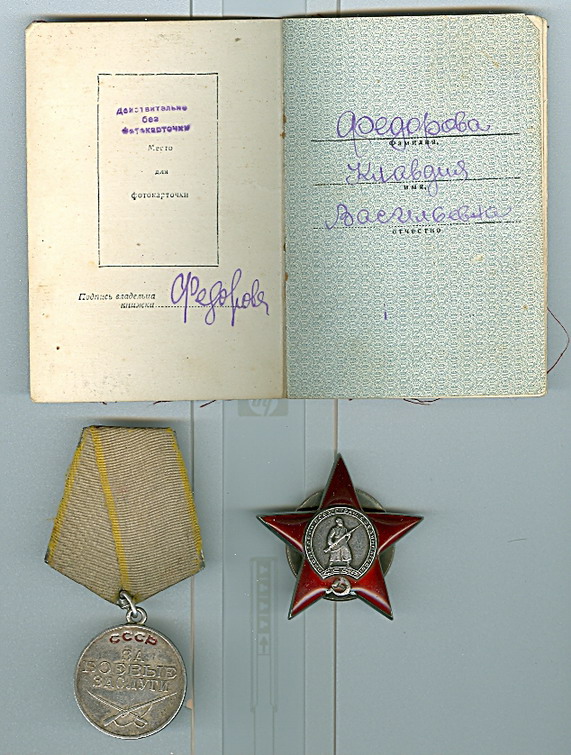 Действительно
без
фотокарточки
Место
для
фотокарточки
Подпись владельца
книжки
Федорова
Федорова
фамилия,
Клавдия
имя,
Васильевна
отчество
СССР
ЗА
БОЕВЫЕ
ЗАСЛУГИ